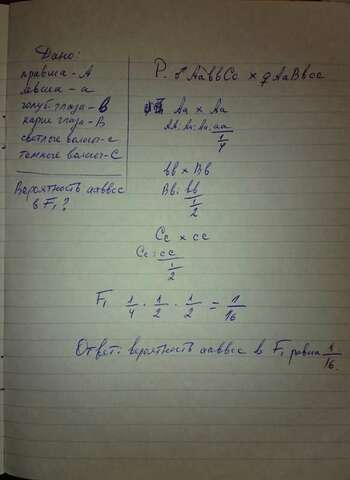 Дано:
правша - А
левша - а
голуб. глаза - в
карие глаза - В
светлые волосы - с
темные волосы - С
Вероятность ааввсс
в F₁?
P. ♂ АаbbСс × ♀ АаВвсс
Аа × Аа
АА: Аа: Аа: аа
1/4
вв × Вв
Вв: вв
1/2
Сс × сс
Сс: сс
1/2
F₁ 1/4 · 1/2 · 1/2 = 1/16
Ответ: вероятность ааввсс в F₁ равна 1/16.